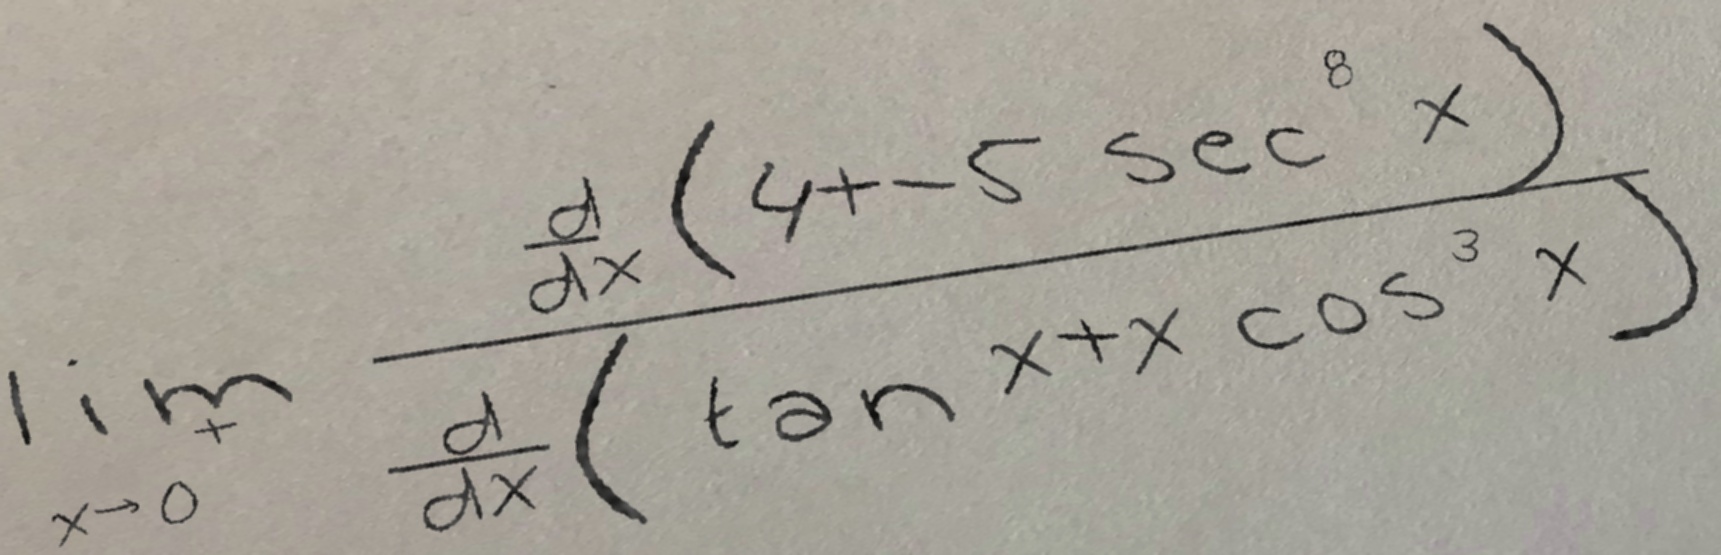 \lim_{x \to 0^+} \frac{\frac{d}{dx}(4+-5 \sec^8 x)}{\frac{d}{dx}(\tan x+x \cos^3 x)}